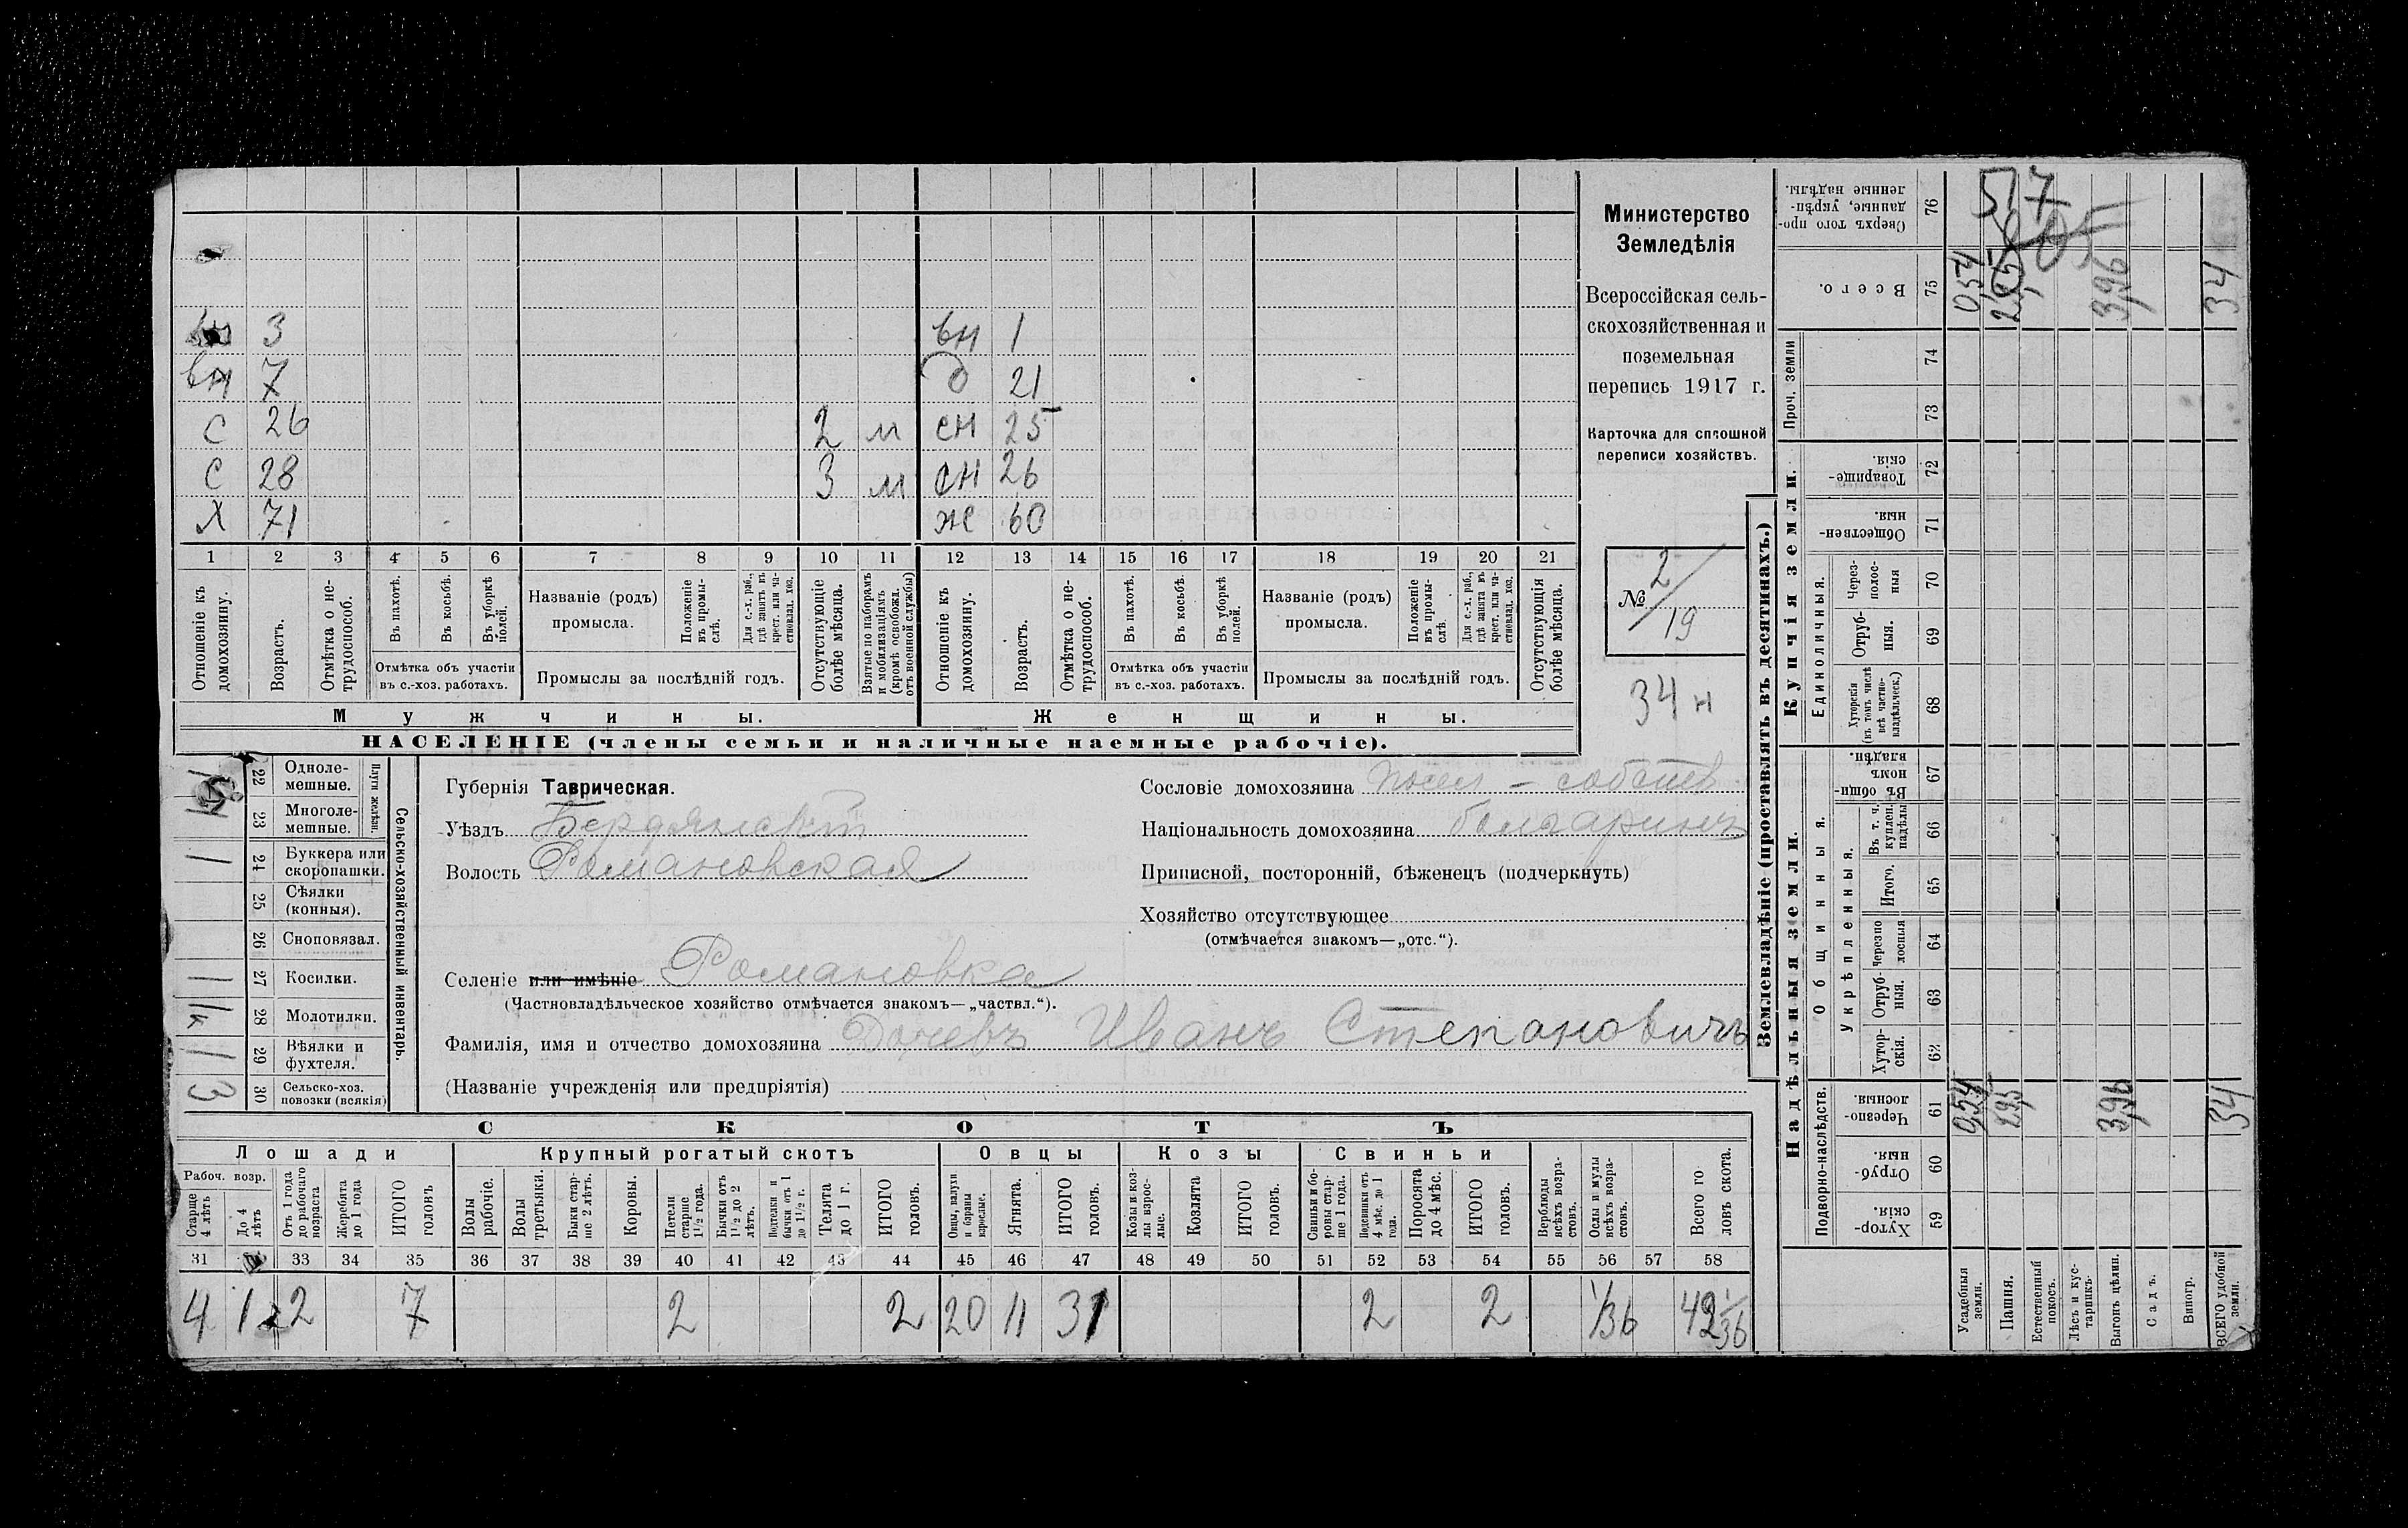 вн 3 вн 1
вн 7 д 21
с 26 2 м сн 25
с 28 3 м сн 26
х 71 ж 60
1 2 3 4 5 6 7 8 9 10 11 12 13 14 15 16 17 18 19 20 21
Отношеніе къ домохозяину.
Возрастъ.
Отмѣтка о не-
трудоспособ.
Въ пахотѣ.
Въ косьбѣ.
Въ уборкѣ
полей.
Отмѣтка объ участіи
въ с.-хоз. работахъ.
Названіе (родъ)
промысла.
Положеніе
въ промы-
слѣ.
Для с.-х. раб.,
гдѣ занятъ въ
крест. или ча-
стновлад. хоз.
Промыслы за послѣдній годъ.
Отсутствующіе
болѣе мѣсяца.
Взятые по наборамъ
и мобилизаціямъ
(кромѣ освобожд.
отъ военной службы)
Отношеніе къ
домохозяину.
Возрастъ.
Отмѣтка о не-
трудоспособ.
Въ пахотѣ.
Въ косьбѣ.
Въ уборкѣ
полей.
Отмѣтка объ участіи
въ с.-хоз. работахъ.
Названіе (родъ)
промысла.
Положеніе
въ промы-
слѣ.
Для с.-х. раб.,
гдѣ занята въ
крест. или ча-
стновлад. хоз.
Промыслы за послѣдній годъ.
Отсутствующія
болѣе мѣсяца.
Мужчины. Женщины.
НАСЕЛЕНІЕ (члены семьи и наличные наемные рабочіе).
Министерство
Земледѣлія
Всероссійская сель-
скохозяйственная и
поземельная
перепись 1917 г.
Карточка для сплошной
переписи хозяйствъ.
№ 2/19
34 н
Сельско-хозяйственный инвентарь.
Плуги желѣзн.
22 Одноле-
мешные.
23 Многоле-
мешные.
1 24 Буккера или
скоропашки.
25 Сѣялки
(конныя).
26 Сноповязал.
1 27 Косилки.
1к 28 Молотилки.
1 29 Вѣялки и
фухтеля.
3 30 Сельско-хоз.
повозки (всякія)
Губернія Таврическая.
Уѣздъ Бердянскій
Волость Романовская
Селеніе или имѣніе Романовка
(Частновладѣльческое хозяйство отмѣчается знакомъ—„частвл.“).
Фамилія, имя и отчество домохозяина Дочевъ Иванъ Степановичъ
(Названіе учрежденія или предпріятія)
Сословіе домохозяина посел - собств
Національность домохозяина болгаринъ
Приписной, посторонній, бѣженецъ (подчеркнуть)
Хозяйство отсутствующее
(отмѣчается знакомъ—„отс.“).
СКОТЪ
Лошади Крупный рогатый скотъ Овцы Козы Свиньи
Рабоч. возр.
Старше
4 лѣтъ
До 4
лѣтъ
Отъ 1 года
до рабочаго
возраста
Жеребята
до 1 года
ИТОГО
головъ
Волы
рабочіе.
Волы
третьяки.
Быки стар-
ше 2 лѣтъ.
Коровы.
Нетели
старше
1½ года.
Бычки отъ
1½ до 2
лѣтъ.
Подтелки и
бычки отъ 1
до 1½ г.
Телята
до 1 г.
ИТОГО
головъ.
Овцы, валухи
и бараны
взрослые.
Ягнята.
ИТОГО
головъ.
Козы и коз-
лы взрос-
лые.
Козлята
ИТОГО
головъ.
Свиньи и бо-
ровы стар-
ше 1 года.
Подсвинки отъ
4 мѣс. до 1
года.
Поросята
до 4 мѣс.
ИТОГО
головъ.
Верблюды
всѣхъ возра-
стовъ.
Ослы и мулы
всѣхъ возра-
стовъ.
Всего го
ловъ скота.
31 33 34 35 36 37 38 39 40 41 42 43 44 45 46 47 48 49 50 51 52 53 54 55 56 57 58
4 1 2 7 2 2 20 11 31 2 2 1/36 42 1/36
Землевладѣніе (проставлять въ десятинахъ.)
Надѣльныя земли. Купчія земли.
Подворно-наслѣдств.
Общинныя.
Укрѣпленныя.
Единоличныя.
Проч. земли
Хутор-
скія. 59
Отруб-
ныя. 60
Черезпо-
лосныя. 61
Хутор-
скія. 62
Отруб-
ныя. 63
Черезпо
лосныя 64
Итого. 65
Въ т. ч.
куплен.
надѣлы 66
Въ общи-
номъ
владѣн. 67
Хуторскія
(въ томъ числѣ
всѣ частно-
владѣльческ.) 68
Отруб-
ныя. 69
Через-
полос-
ныя 70
Обществен-
ныя. 71
Товарище-
скія. 72
73
74
Всего. 75
Сверхъ того про-
данные, укрѣп-
ленные надѣлы. 76
Усадебныя
земли. 0,54 0,54
Пашня. 29,5
Естественный
покосъ.
Лѣсъ и кус-
тарникъ.
Выгонъ цѣлин. 3,96 3,96
Садъ.
Виногр.
ВСЕГО удобной
земли. 34 34
517